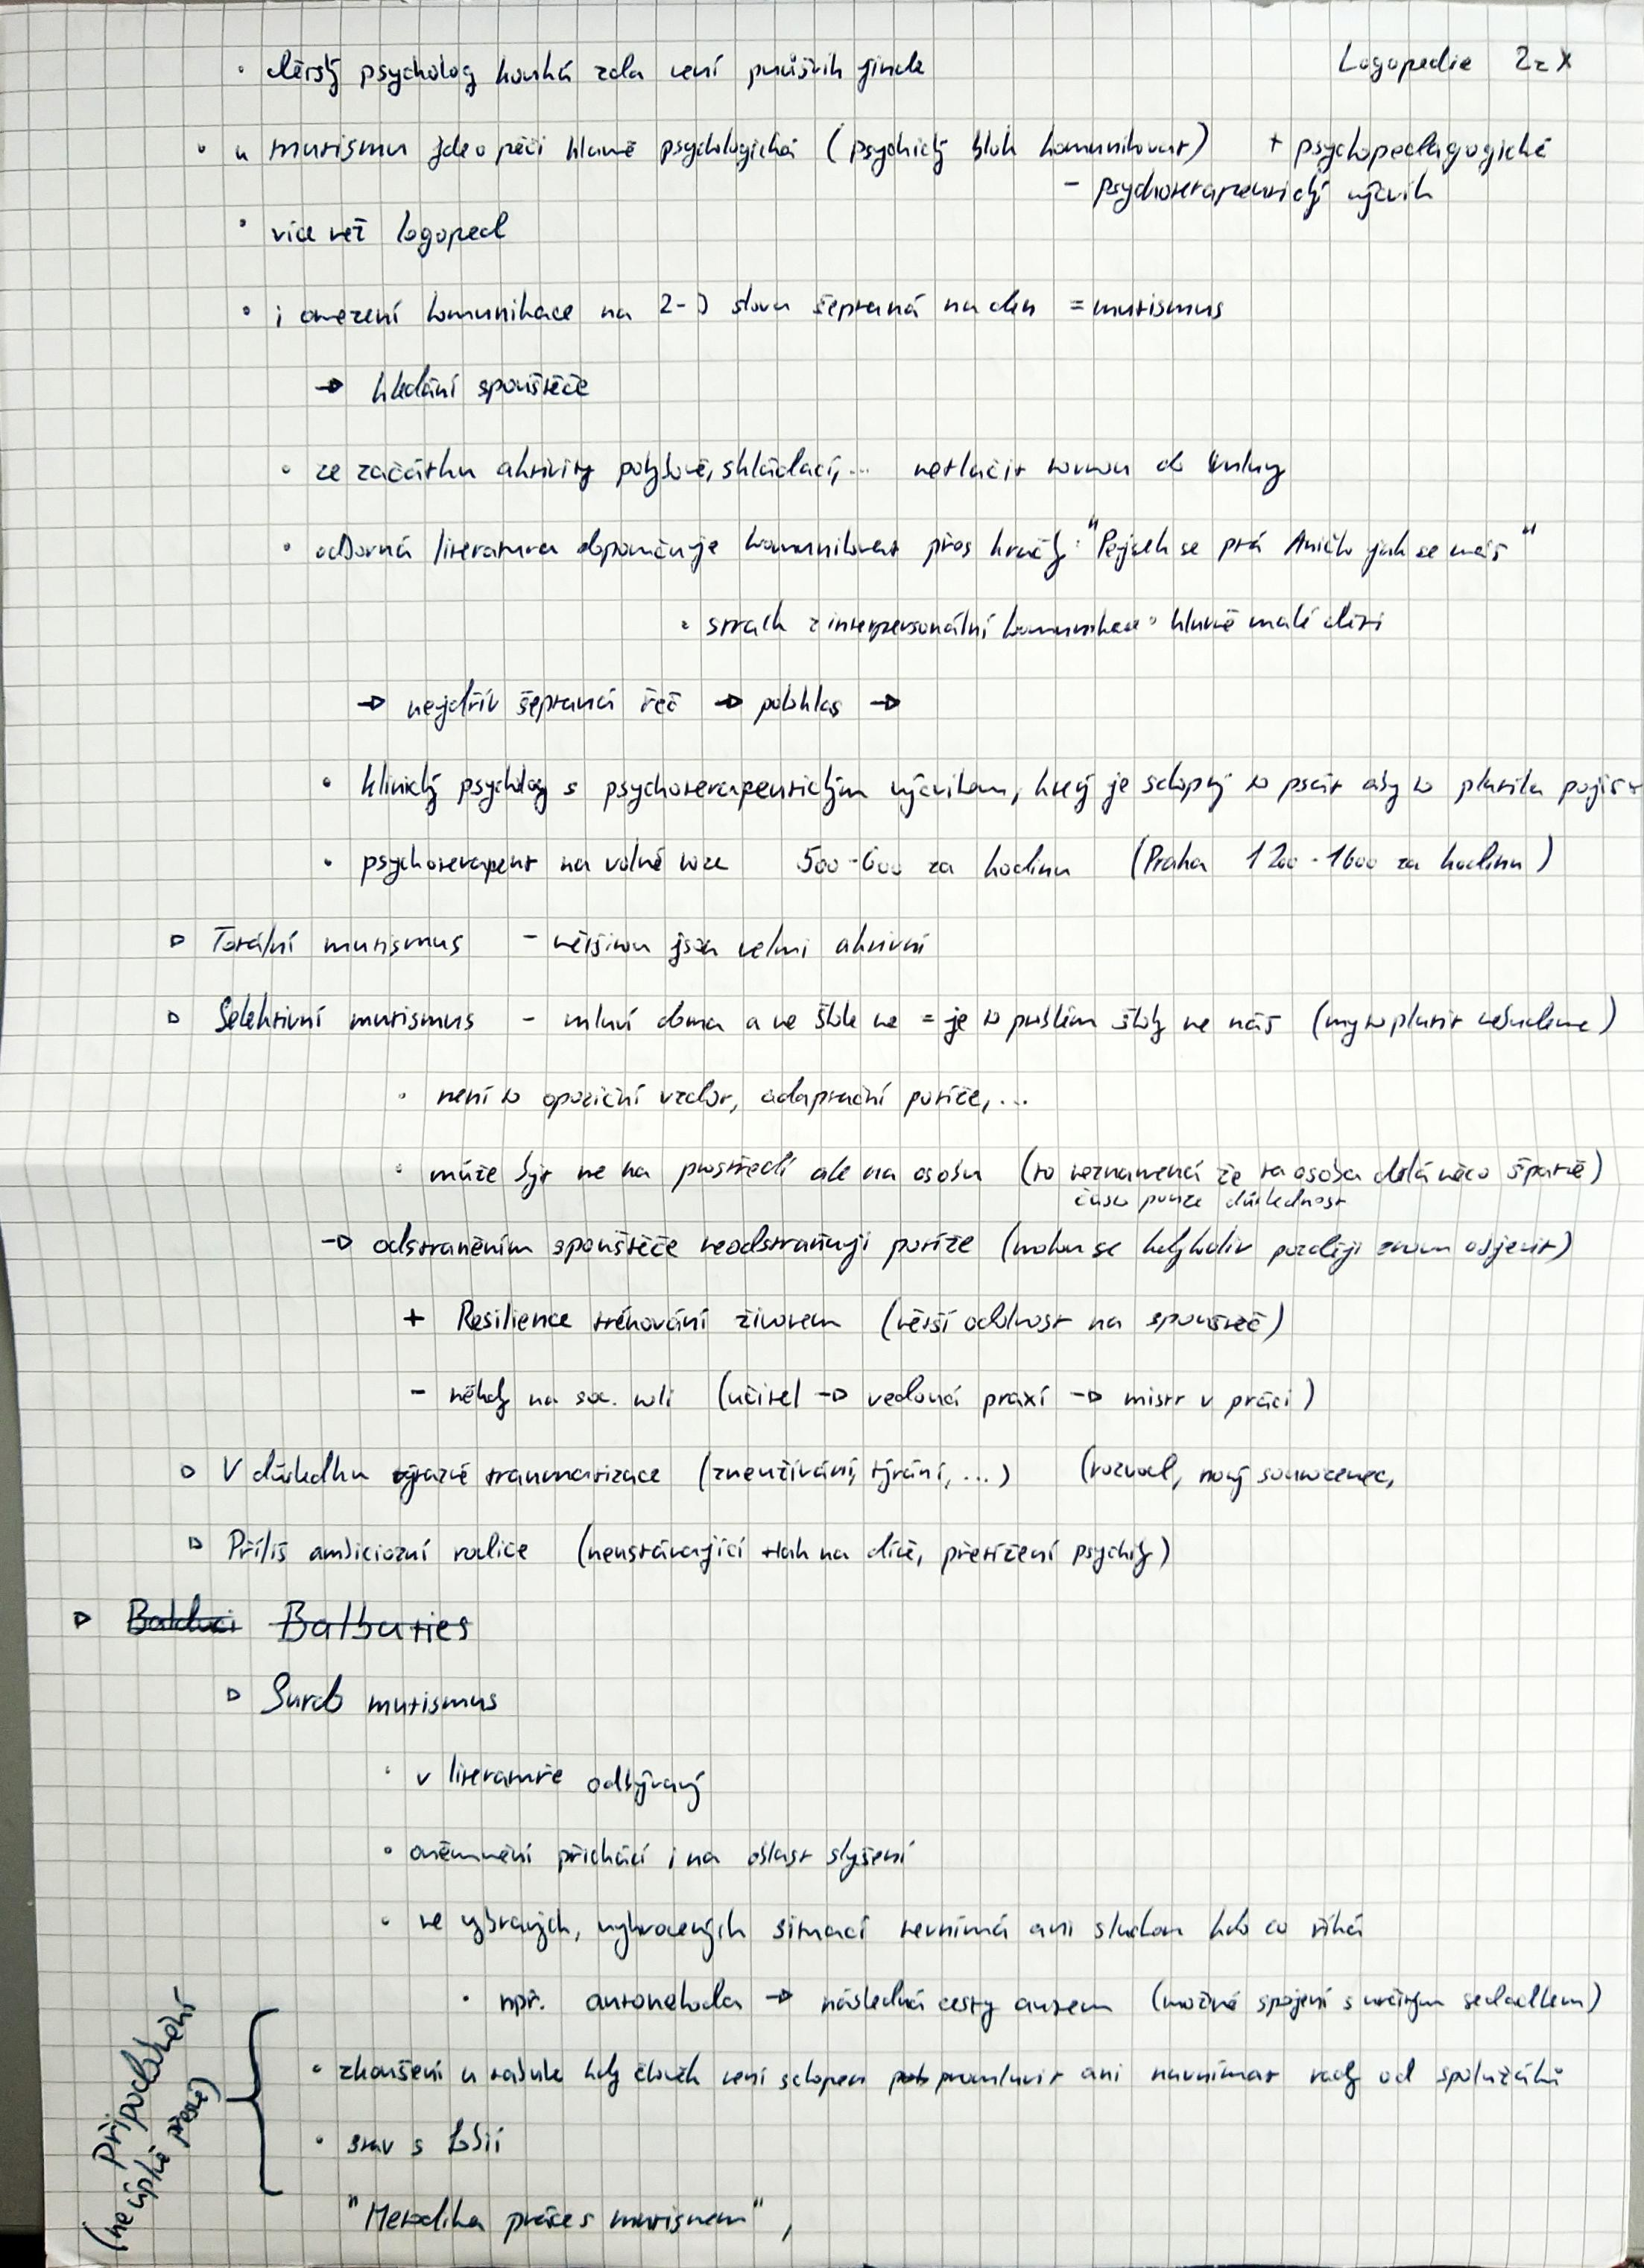 Logopedie 2z X
• dětský psycholog kouká zda není průšvih jinde
• u mutismu jde o péči hlavně psychologická (psychický blok komunikovat) + psychopedagogické
- psychoterapeutický výcvik
• více než logoped
• i omezení komunikace na 2-3 slova šeptaná na den = mutismus
→ hledání spouštěče
• ze začátku aktivity pohybové, skládací, ... netlačit rovnou do mluvy
• odborná literatura doporučuje komunikovat přes hračky: "Pejsek se ptá Aničko jak se máš"
• strach z interpersonální komunikace • hlavně malé děti
→ nejdřív šeptaná řeč → polohlas →
• klinický psycholog s psychoterapeutickým výcvikem, který je schopný to psát aby to platila pojišť
• psychoterapeut na volné noze 500-600 za hodinu (Praha 1200-1600 za hodinu)
▷ Totální mutismus - většinou jsou velmi aktivní
▷ Selektivní mutismus - mluví doma a ve škole ne = je to problém školy ne náš (my to platit nebudeme)
• není to opoziční vzdor, adaptační potíže, ...
• může být ne na prostředí ale na osobu (to neznamená že ta osoba dělá něco špatně)
často pouze důslednost
→ odstraněním spouštěče neodstraňuji potíže (mohou se kdykoliv později znovu objevit)
+ Resilience trénování životem (větší odolnost na spouštěč)
- někdy na soc. roli (učitel → vedoucí praxí → mistr v práci)
▷ V důsledku výrazné traumatizace (zneužívání, týrání, ...) (rozvod, nový sourozenec,
▷ Příliš ambiciozní rodiče (neustávající tlak na dítě, přetížení psychiky)
▷ Balbuties
▷ Surdo mutismus
• v literatuře odbývaný
• oněmnění přichází i na oblast slyšení
• ve vybraných, vyhrocených situací nevnímá ani sluchem kdo co říká
• npř. autonehoda → následná cesty autem (možné spojení s určitým sedadlem)
Připodobnění
(ne úplně přesné)
• zkoušení u tabule kdy člověk není schopen promluvit ani navnímat rady od spolužáků
• stav s fobií
"Metodika práce s mutismem",